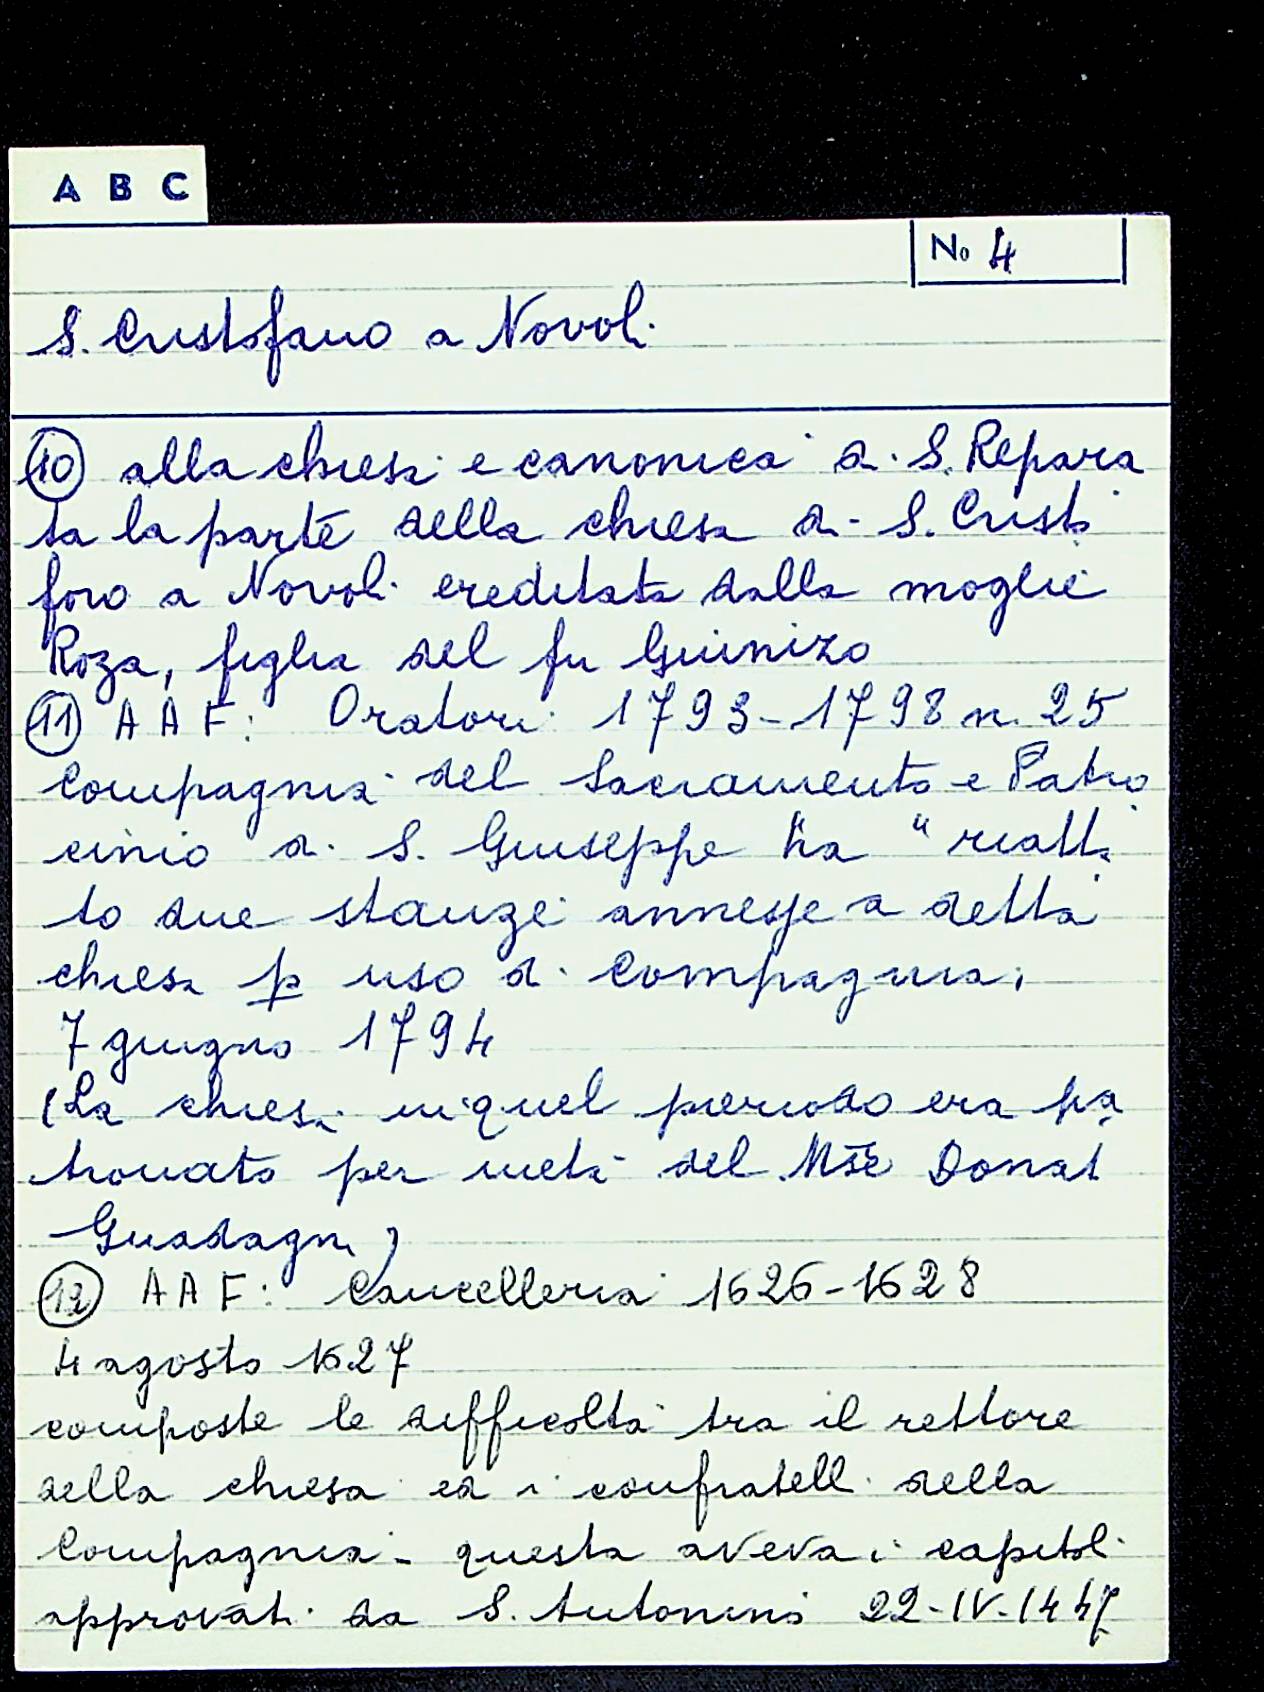 A B C
No 4
S. Cristofano a Novoli
10 alla chiesa e canonica di S. Repara
ta la parte della chiesa di S. Cristo
foro a Novoli ereditata dalla moglie
Roza, figlia del fu Guinizo
11 AAF: Oratori 1793-1798 n. 25
Compagnia del Sacramento e Patro
cinio di S. Giuseppe ha "riatta
to due stanze annesse a detta
chiesa p uso di Compagnia,
7 giugno 1794
(La chiesa in quel periodo era pa
tronato per metà del Mse Donat
Guadagni)
12 AAF: Cancelleria 1626-1628
4 agosto 1627
composte le difficoltà tra il rettore
della chiesa ed i confratelli della
Compagnia - questa aveva i capitoli
approvati da S. Antonino 22-IV-1447